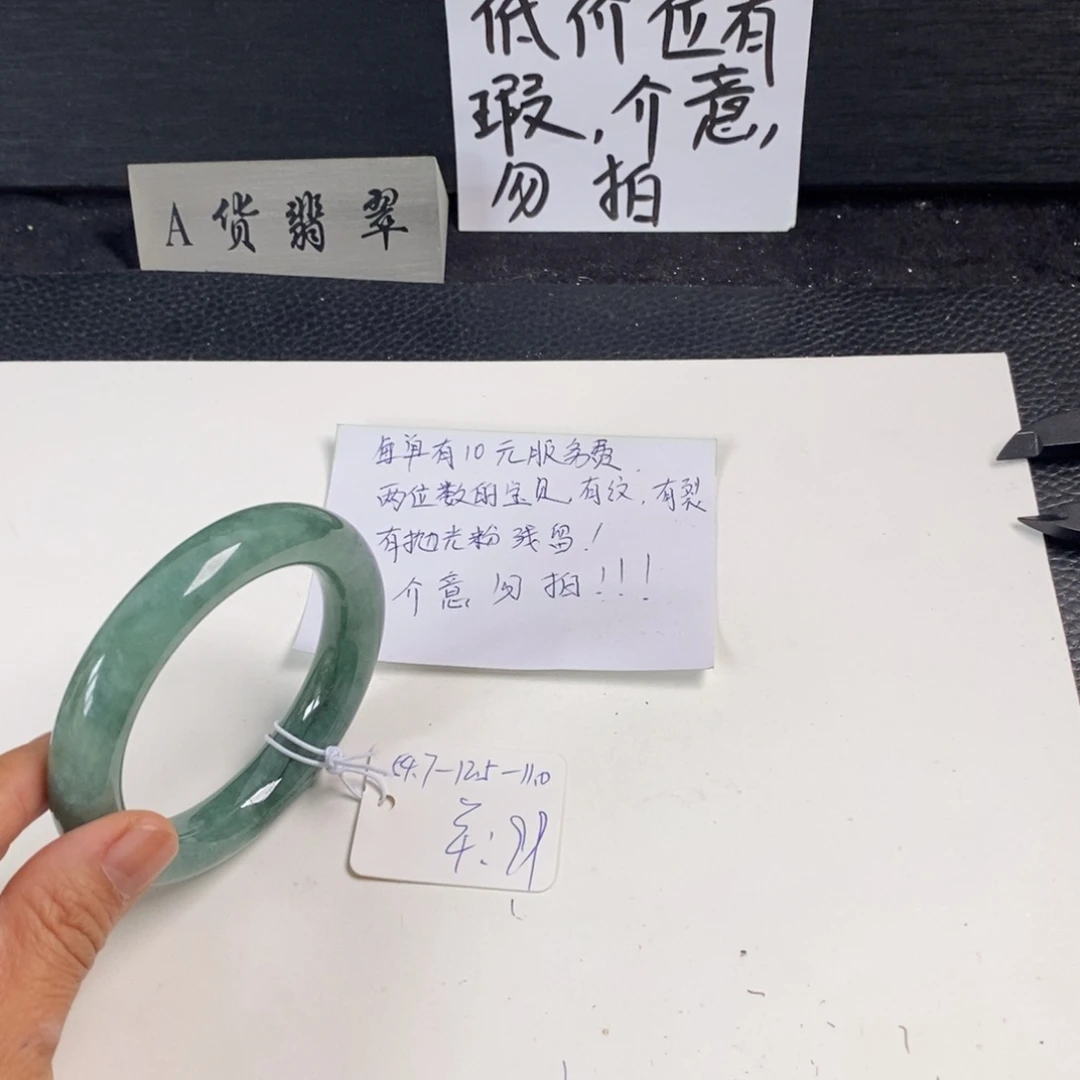 低价位有
瑕,介意,
勿拍
A货翡翠
每单有10元服务费.
两位数的宝贝,有纹,有裂
有抛光粉残留!
介意勿拍!!!
54.7-12.5-11.0